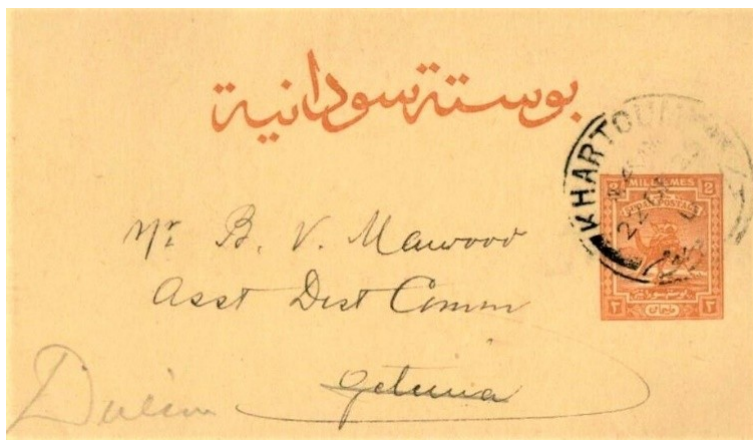 بوستة سودانية
KHARTOUM
2 MILLIEMES 2
Mr B. V. Marwood
Asst Dist Comm
Geteina
Dueim
٢ ٢